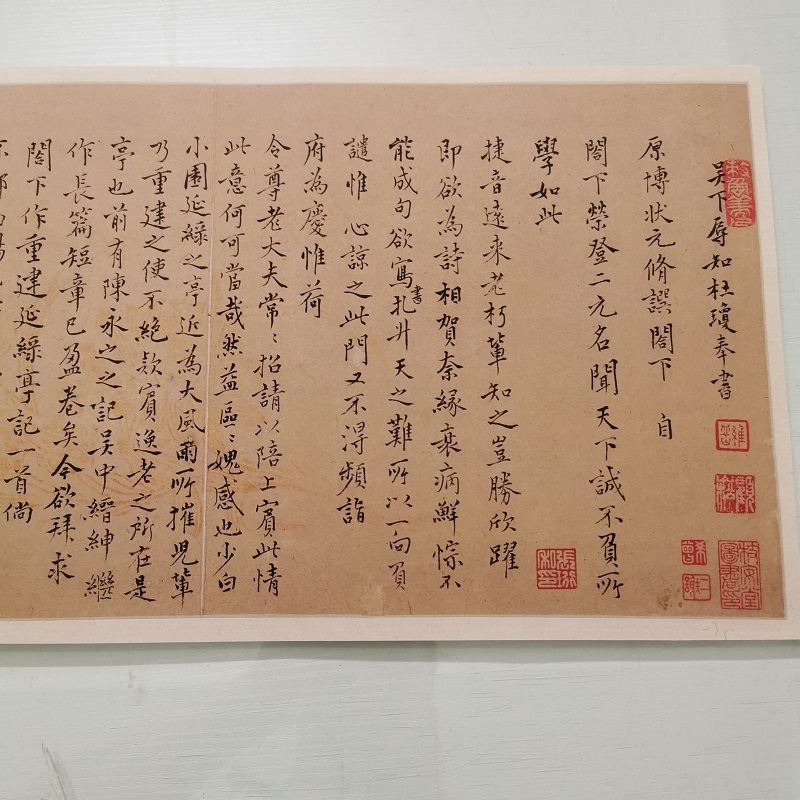 吳下辱知杜瓊奉書
原博狀元脩譔閤下　自
閤下榮登二元名聞天下誠不負所
學如此
捷音遠來老朽輩知之豈勝欣躍
即欲為詩相賀奈緣衰病鮮悰不
能成句欲寫書札升天之難所以一向負
譴惟　心諒之此門又不淂頻詣
府為慶惟荷
令尊老大夫常〻招請以陪上賓此情
此意何可當哉然益區〻媿感也少白
小園延綠之亭近為大風雨所摧兒輩
乃重建之使不絕欵賓逸老之所在是
亭也前有陳永之之記吳中縉紳繼
作長篇短章已盈卷矣今欲拜求
閤下作重建延綠亭記一首倘
張珩